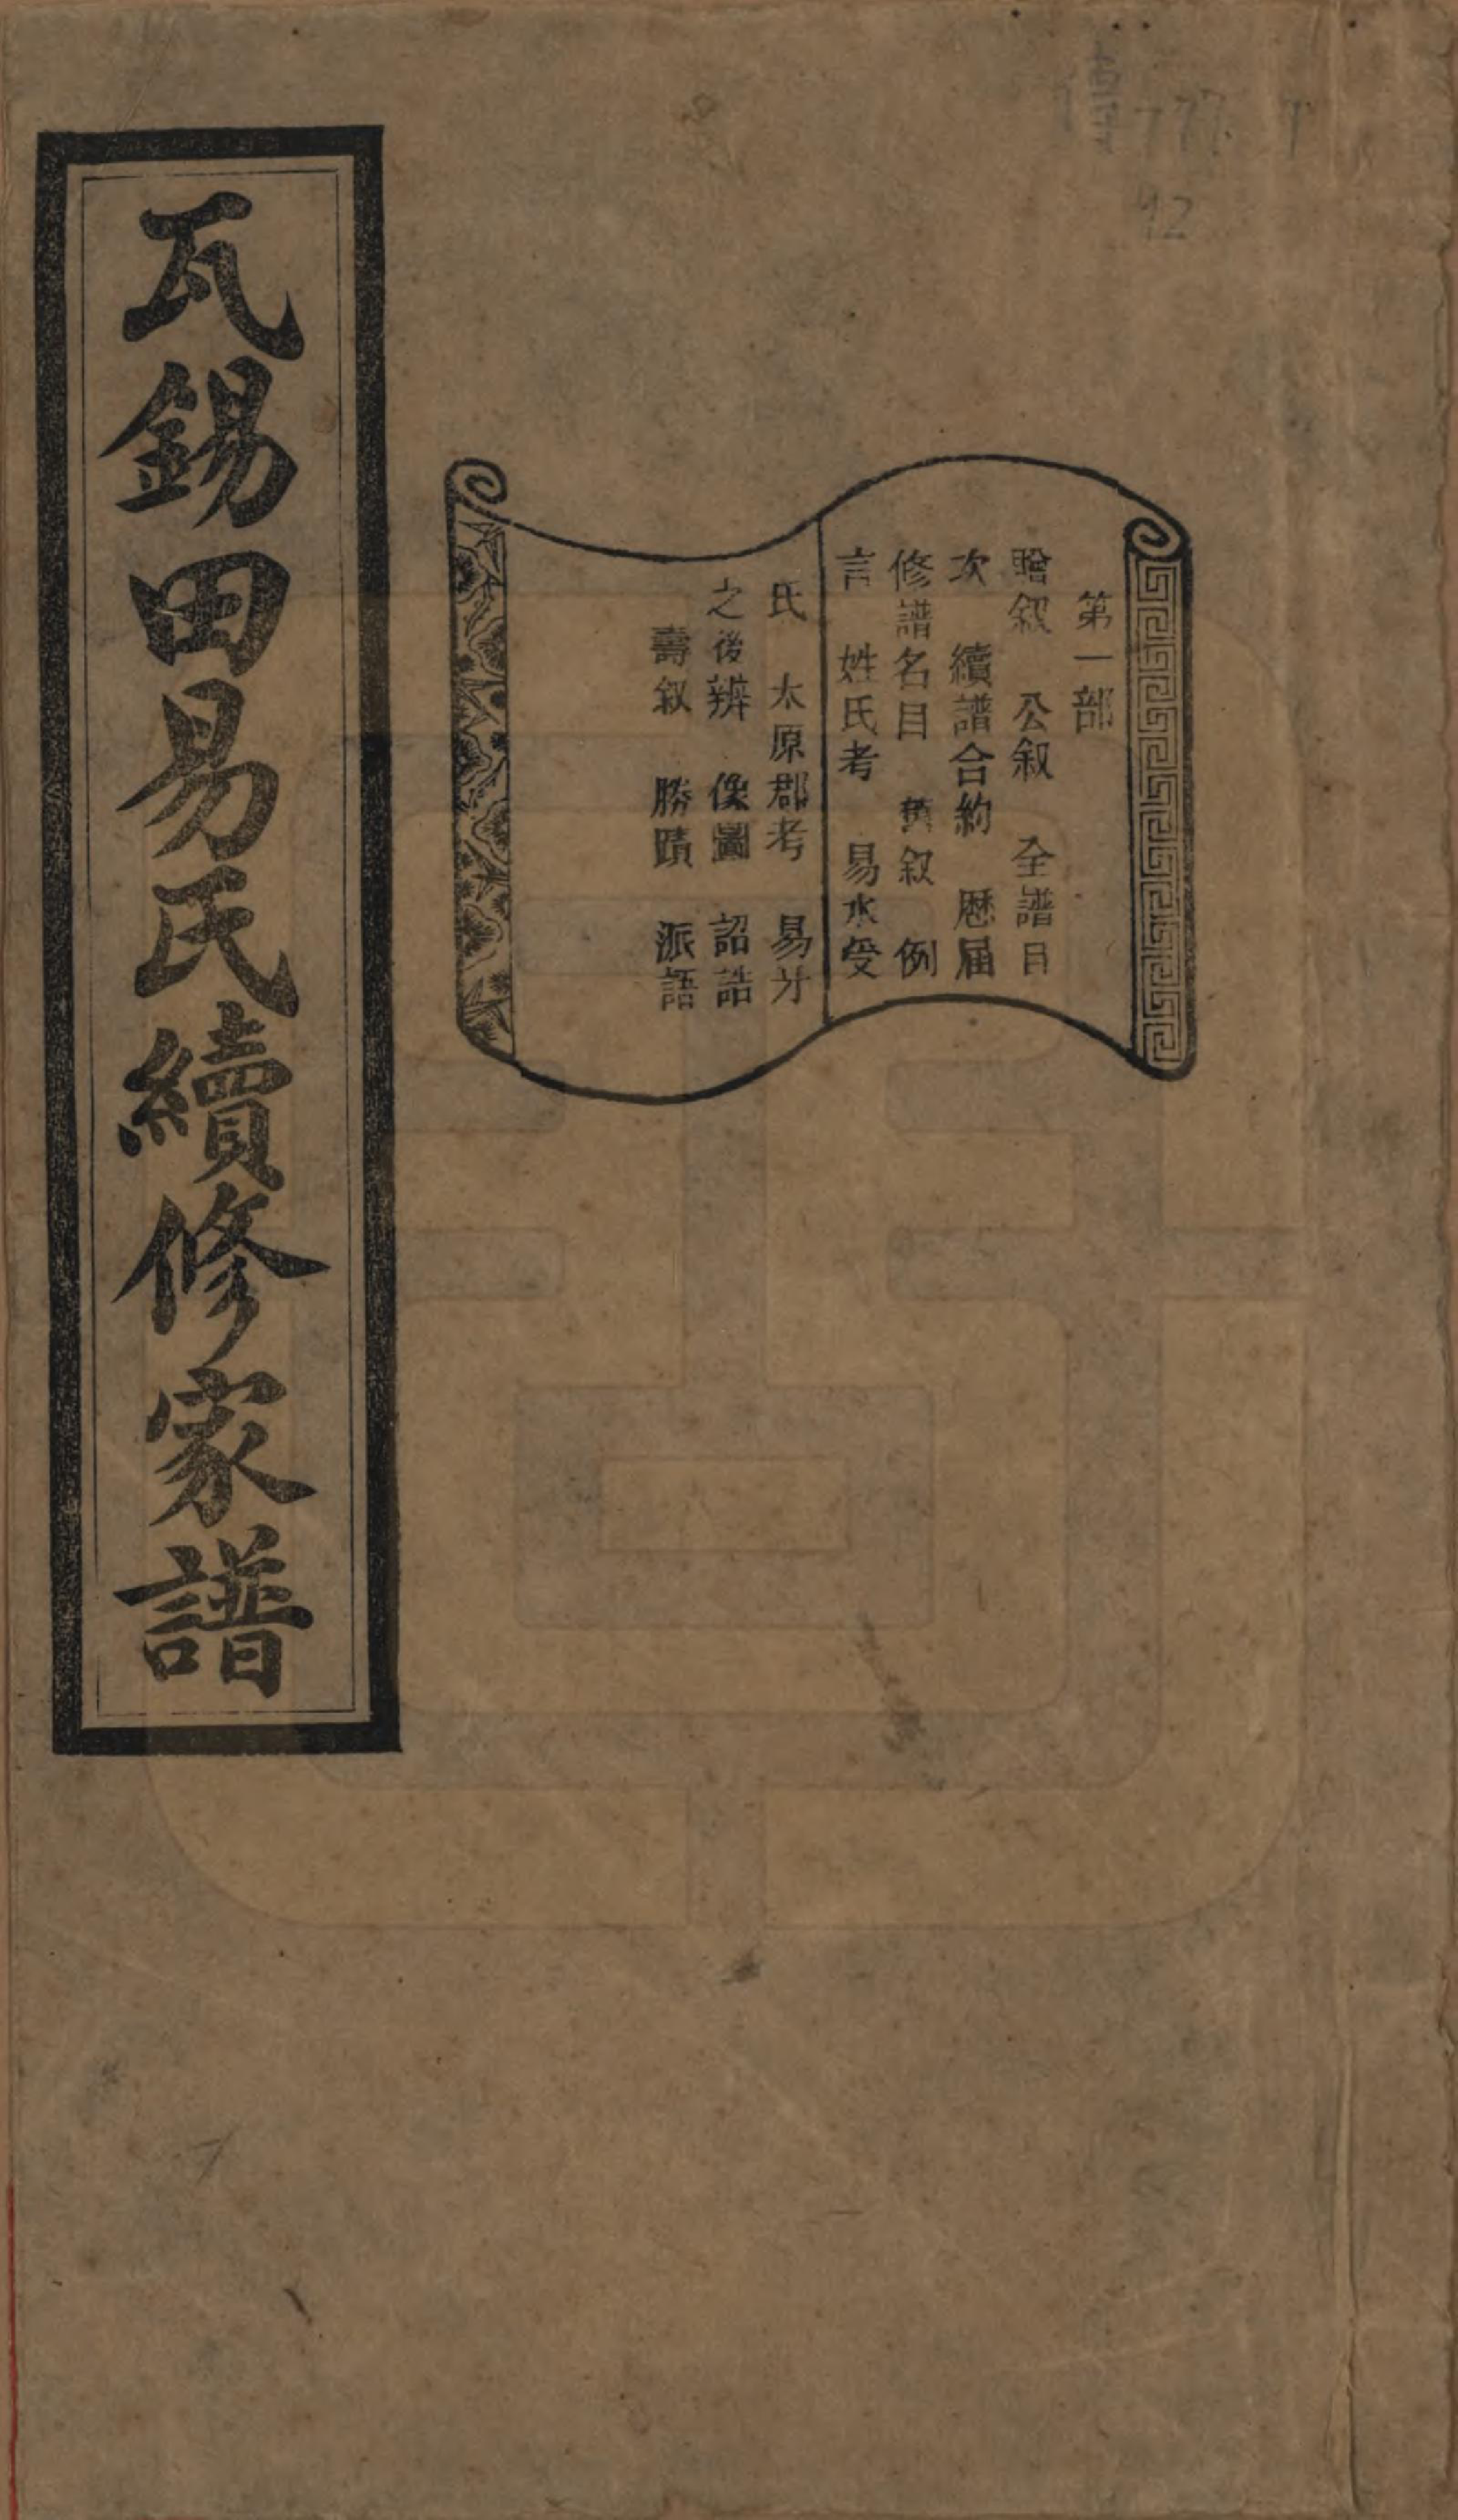 傳777 7
12
第一部
贈叙　公叙　全譜目
次　續譜合約　歷届
修譜名目　舊叙　例
言　姓氏考　易水受
氏　太原郡考　易牙
之後辨　像圖　詔誥
壽叙　勝蹟　派語
瓦錫田易氏續修家譜